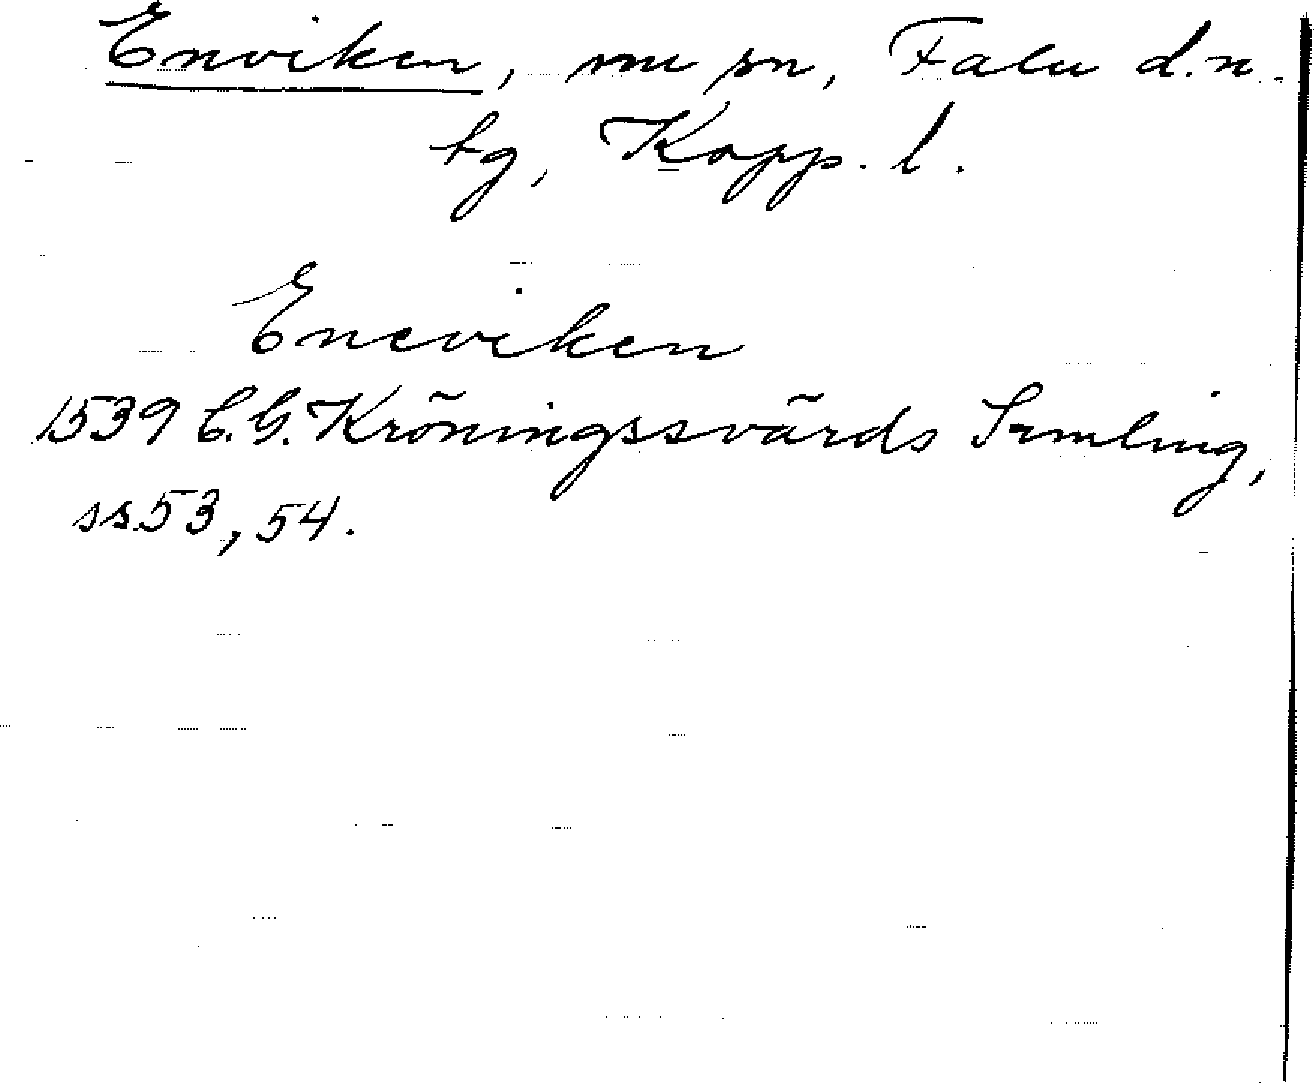 Enviken, nu sn, Falu d.n.
tg, Kopp. l.
Eneviken
1539 C.G. Kröningssvärds Samling,
ss 53, 54.